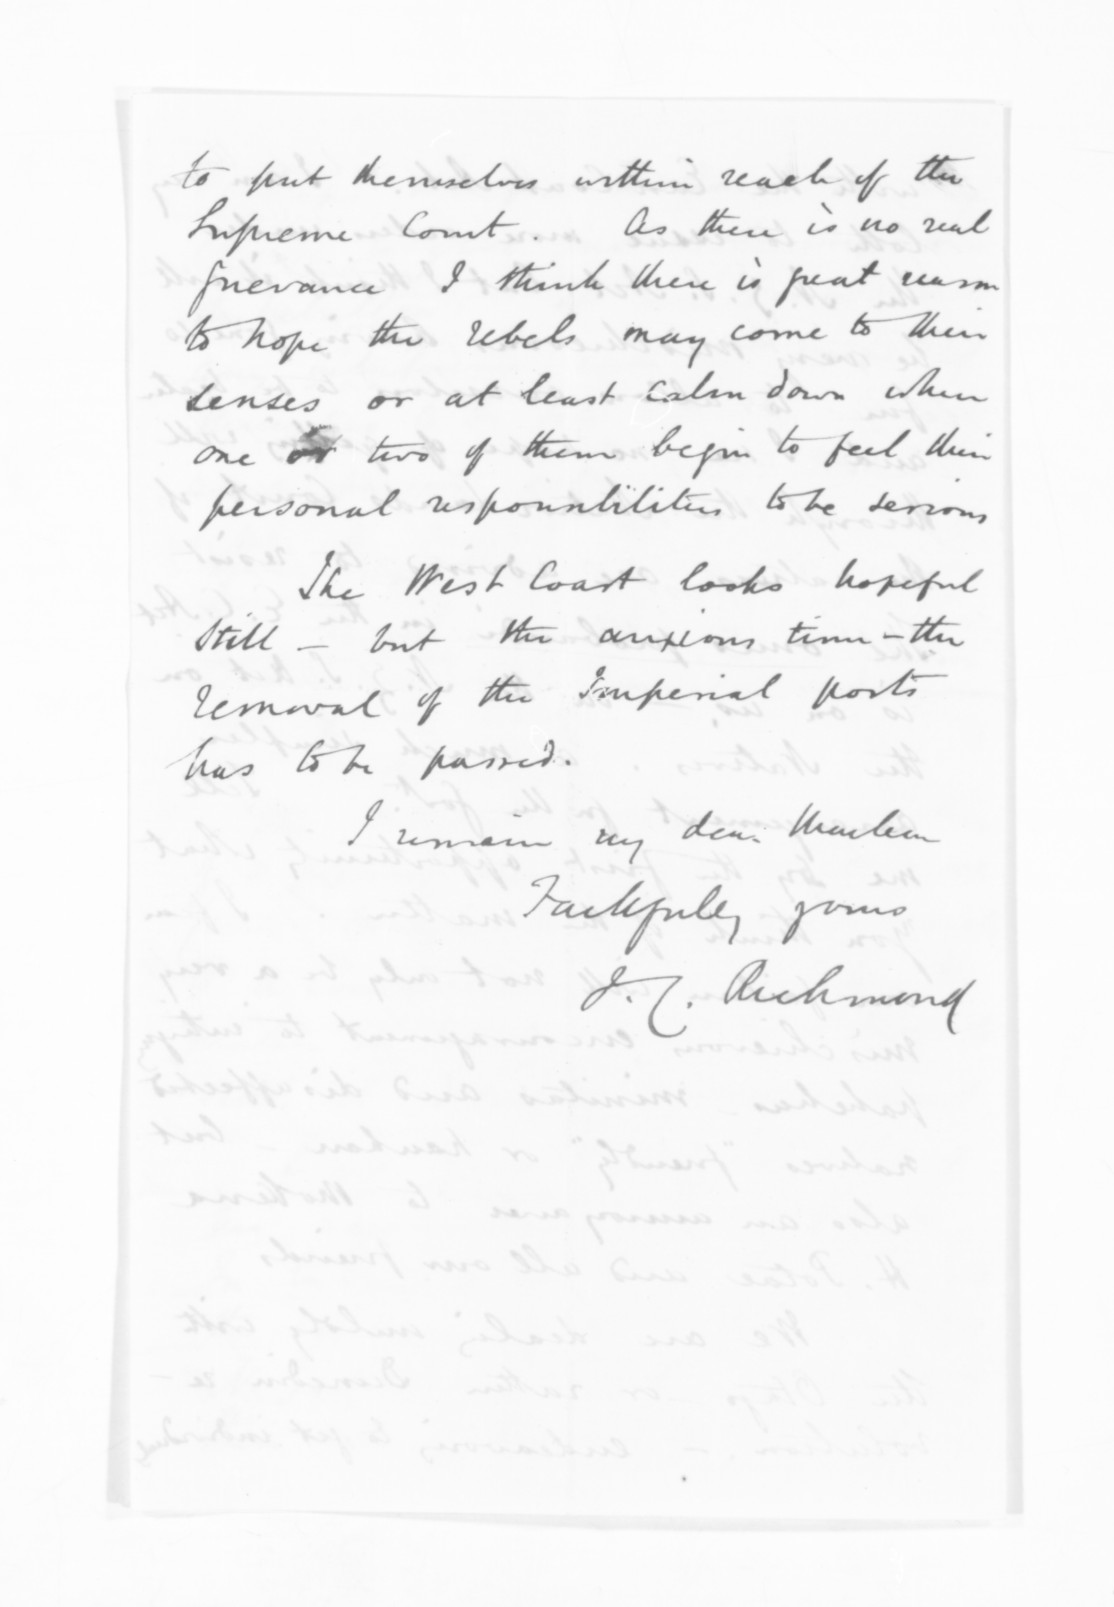 to put themselves within reach of the
Supreme Court. As there is no real
grievance I think there is great reason
to hope the rebels may come to their
senses or at least calm down when
one or two of them begin to feel their
personal responsibilities to be serious
The West Coast looks hopeful
still – but the anxious time – the
removal of the Imperial posts
has to be passed.
I remain my dear McLean
Faithfully yours
J. C. Richmond